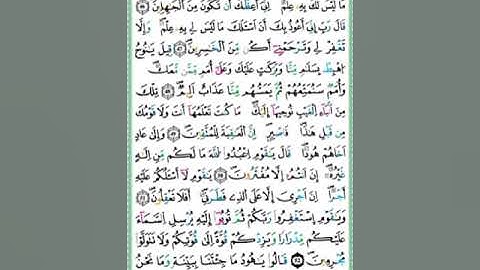 مَا لَيْسَ لَكَ بِهِۦ عِلْمٌ إِنِّىٓ أَعِظُكَ أَن تَكُونَ مِنَ ٱلْجَٰهِلِينَ
قَالَ رَبِّ إِنِّىٓ أَعُوذُ بِكَ أَنْ أَسْـَٔلَكَ مَا لَيْسَ لِى بِهِۦ عِلْمٌ وَإِلَّا
تَغْفِرْ لِى وَتَرْحَمْنِىٓ أَكُن مِّنَ ٱلْخَٰسِرِينَ ٤٧ قِيلَ يَٰنُوحُ
ٱهْبِطْ بِسَلَٰمٍ مِّنَّا وَبَرَكَٰتٍ عَلَيْكَ وَعَلَىٰٓ أُمَمٍ مِّمَّن مَّعَكَ
وَأُمَمٌ سَنُمَتِّعُهُمْ ثُمَّ يَمَسُّهُم مِّنَّا عَذَابٌ أَلِيمٌ تِلْكَ
مِنْ أَنۢبَآءِ ٱلْغَيْبِ نُوحِيهَآ إِلَيْكَ مَا كُنتَ تَعْلَمُهَآ أَنتَ وَلَا قَوْمُكَ
مِن قَبْلِ هَٰذَا فَٱصْبِرْ إِنَّ ٱلْعَٰقِبَةَ لِلْمُتَّقِينَ وَإِلَىٰ عَادٍ
أَخَاهُمْ هُودًا قَالَ يَٰقَوْمِ ٱعْبُدُوا۟ ٱللَّهَ مَا لَكُم مِّنْ إِلَٰهٍ
غَيْرُهُۥٓ إِنْ أَنتُمْ إِلَّا مُفْتَرُونَ يَٰقَوْمِ لَآ أَسْـَٔلُكُمْ عَلَيْهِ
أَجْرًا إِنْ أَجْرِىَ إِلَّا عَلَى ٱلَّذِى فَطَرَنِىٓ أَفَلَا تَعْقِلُونَ
وَيَٰقَوْمِ ٱسْتَغْفِرُوا۟ رَبَّكُمْ ثُمَّ تُوبُوٓا۟ إِلَيْهِ يُرْسِلِ ٱلسَّمَآءَ
عَلَيْكُم مِّدْرَارًا وَيَزِدْكُمْ قُوَّةً إِلَىٰ قُوَّتِكُمْ وَلَا تَتَوَلَّوْا۟
مُجْرِمِينَ ٥٢ قَالُوا۟ يَٰهُودُ مَا جِئْتَنَا بِبَيِّنَةٍ وَمَا نَحْنُ